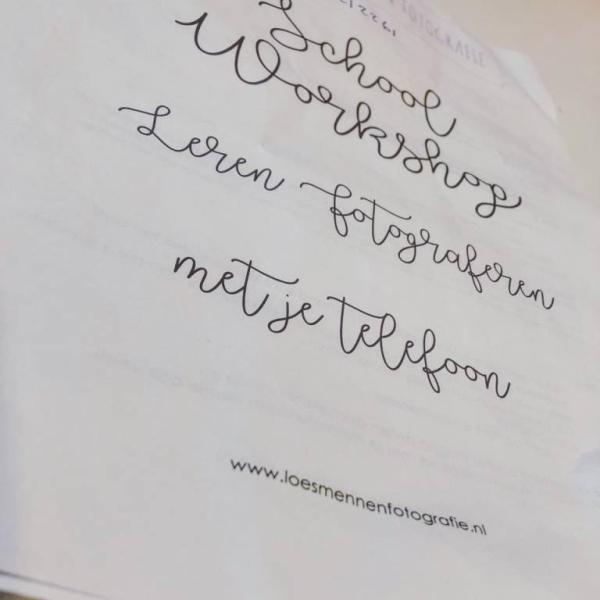 FOTOGRAFIE
School
Workshop
Leren fotograferen
met je telefoon
www.loesmennenfotografie.nl